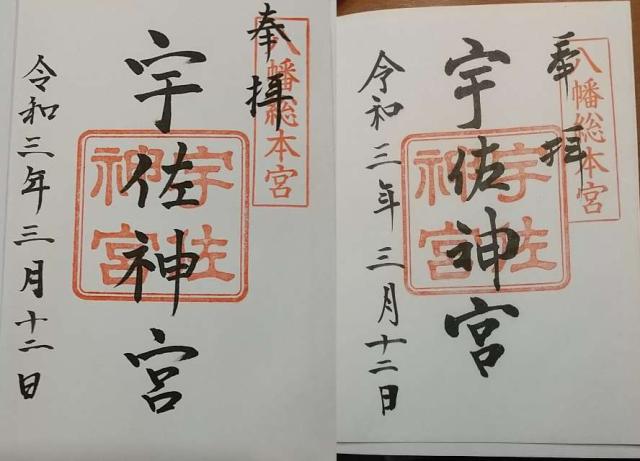 八幡総本宮
奉拝
宇佐神宮
宇佐
神宮
令和三年三月十二日
八幡総本宮
奉拝
宇佐神宮
宇佐
神宮
令和三年三月十二日